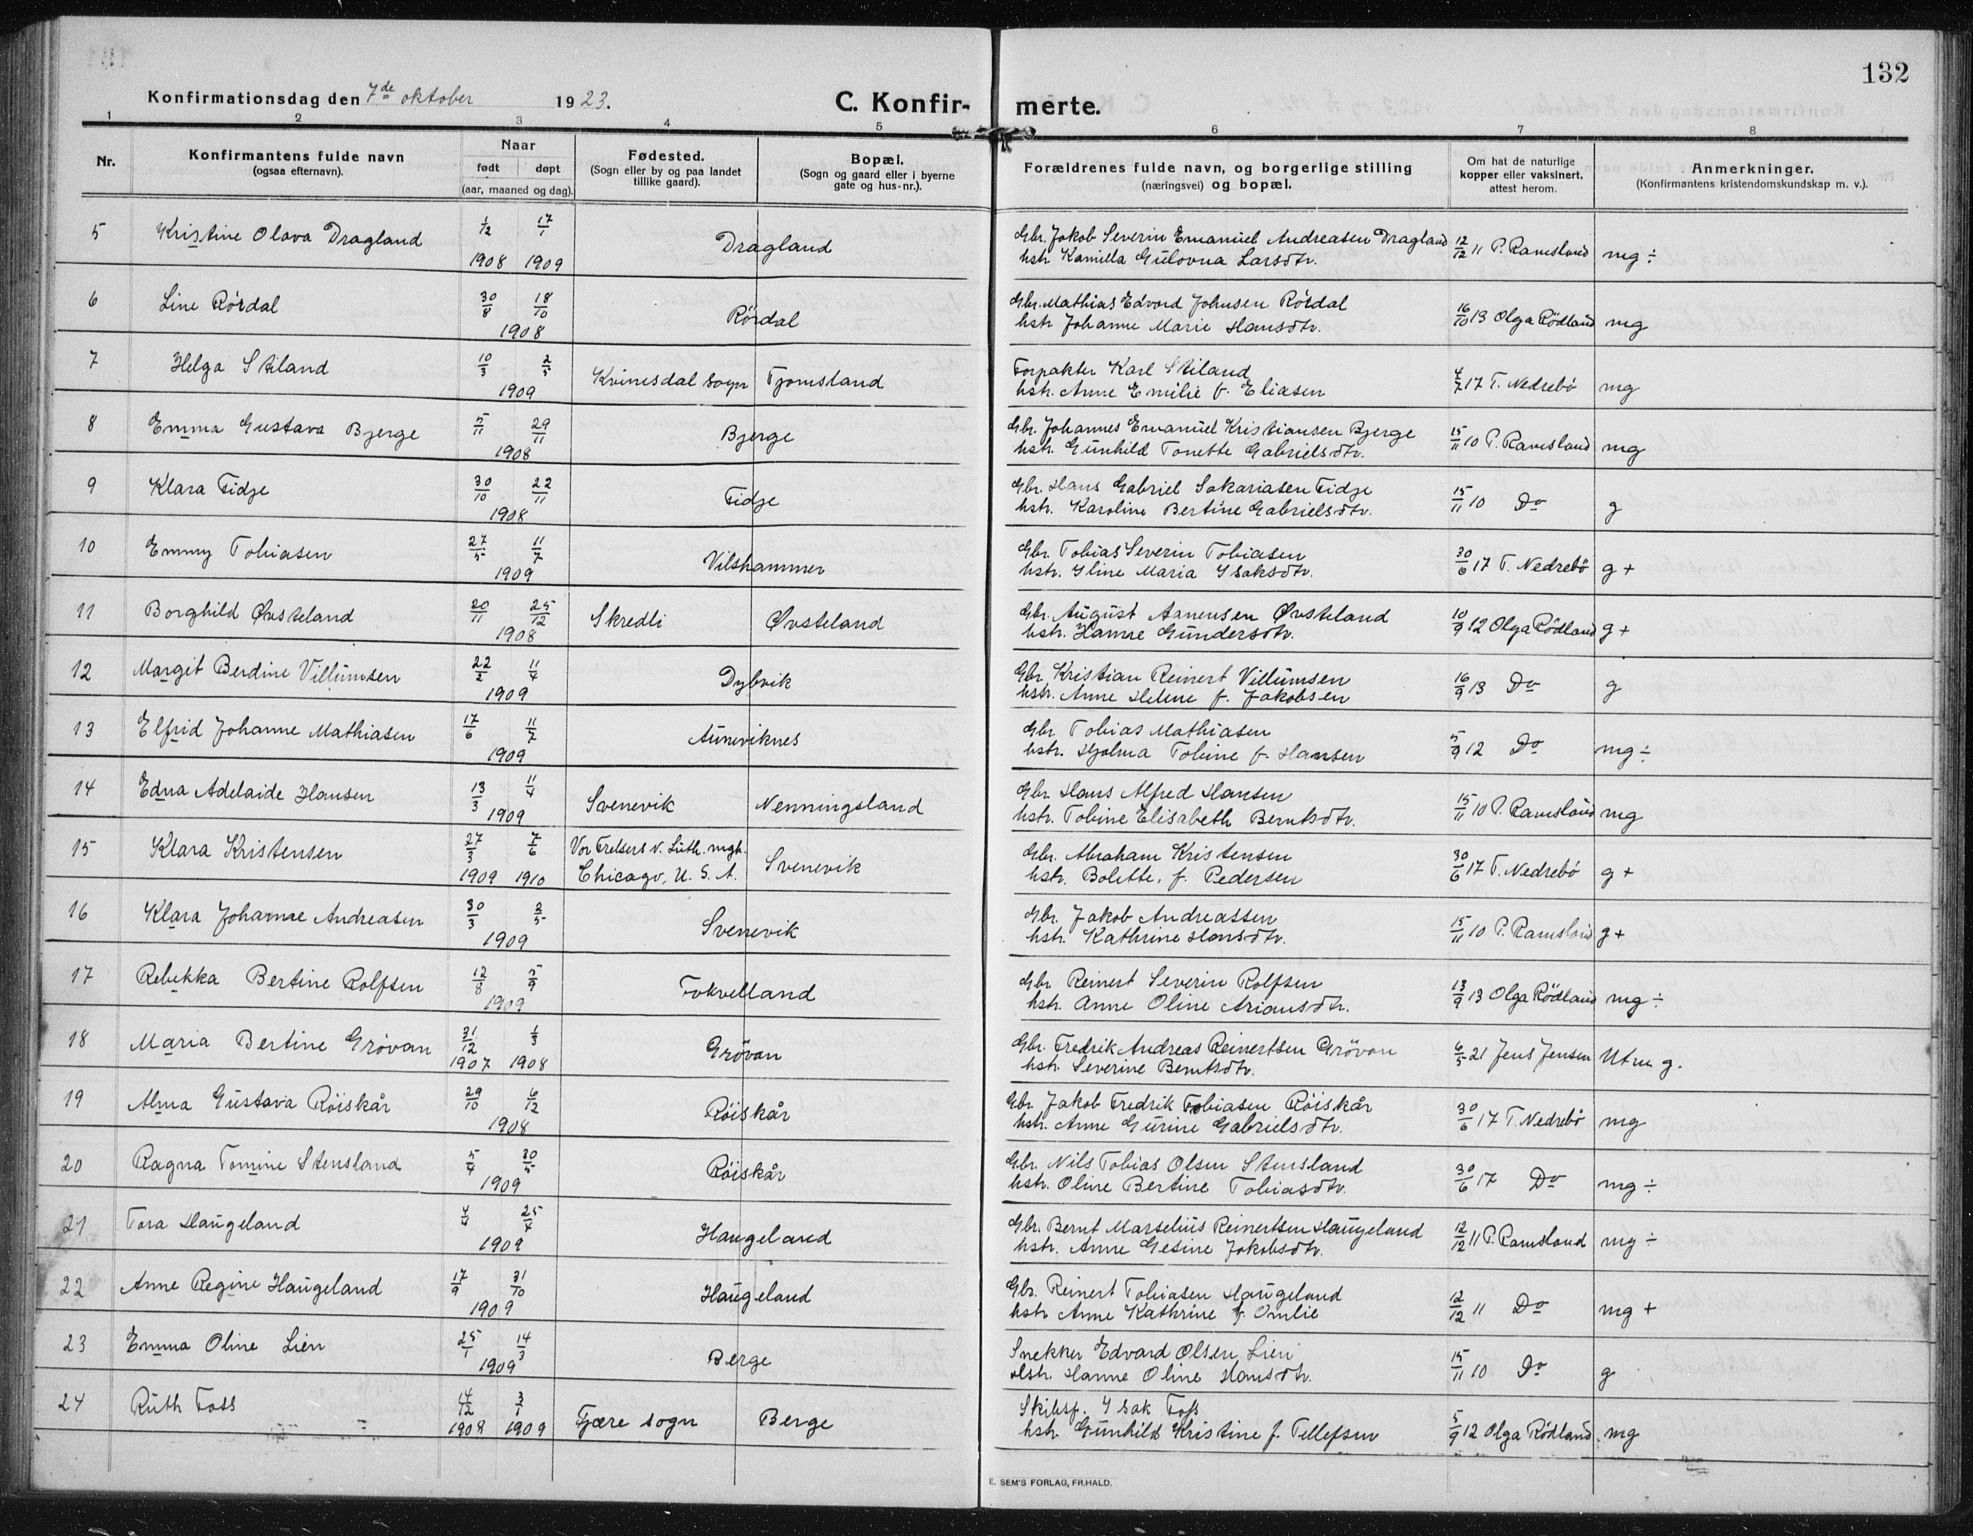 132
Konfirmationsdag den 7de oktober 1923. C. Konfir- merte.
1 2 3 4 5 6 7 8
Nr. Konfirmantens fulde navn (ogsaa efternavn). Naar født døpt (aar, maaned og dag). Fødested. (Sogn eller by og paa landet tillike gaard). Bopæl. (Sogn og gaard eller i byerne gate og hus-nr.). Forældrenes fulde navn, og borgerlige stilling (næringsvei) og bopæl. Om hat de naturlige kopper eller vaksinert, attest herom. Anmerkninger. (Konfirmantens kristendomskundskap m. v.).
5 Kristine Olava Dragland 1/12 1908 17/1 1909 Dragland Gbr. Jakob Severin Emanuel Andreasen Dragland 12/12 11 P. Ramsland mg ÷
hstr. Kamilla Gulovna Larsdtr.
6 Line Rördal 30/8 18/10 1908 Rördal Gbr. Mathias Edvard Johnsen Rördal 16/10 13 Olga Rödland mg
hstr. Johanne Marie Hansdtr.
7 Helga Stiland 10/3 2/5 1909 Kvinesdal sogn Tjomsland Forpakter Karl Stiland 4/7 17 T. Nedrebö mg
hstr. Anne Emilie f. Eliasen
8 Emma Gustava Bjerge 5/11 29/11 1908 Bjerge Gbr. Johannes Emanuel Kristiansen Bjerge 15/11 10 P. Ramsland mg
hstr. Gunhild Tonette Gabrielsdtr.
9 Klara Fidje 30/10 22/11 1908 Fidje Gbr. Hans Gabriel Sakariasen Fidje 15/11 10 Do g
hstr. Karoline Bertine Gabrielsdtr.
10 Emmy Tobiasen 27/5 11/7 1909 Vilshammer Gbr. Tobias Severin Tobiasen 30/6 17 T. Nedrebö g +
hstr. Iline Maria Isaksdtr.
11 Borghild Øvsteland 20/11 25/12 1908 Skredli Øvsteland Gbr. August Aanensen Øvsteland 10/9 12 Olga Rödland g +
hstr. Hanne Gundersdtr.
12 Margit Berdine Villumsen 22/2 11/4 1909 Dybvik Gbr. Kristian Reinert Villumsen 16/9 13 Do g
hstr. Anne Helene f. Jakobsen
13 Elfrid Johanne Mathiasen 17/6 11/7 1909 Auneviknes Gbr. Tobias Mathiasen 5/9 12 Do mg ÷
hstr. Hjalma Tobine f. Hansen
14 Edna Adelaide Hansen 13/3 11/4 1909 Svenevik Nenningsland Gbr. Hans Alfred Hansen 15/11 10 P. Ramsland mg
hstr. Tobine Elisabeth Berntsdtr.
15 Klara Kristensen 27/3 1909 7/6 1910 Vor Frelsers N. Luth. mgh. Chicago, U. S. A. Svenevik Gbr. Abraham Kristensen 30/6 17 T. Nedrebö g +
hstr. Bolette, f. Pedersen
16 Klara Johanne Andreasen 30/3 2/5 1909 Svenevik Gbr. Jakob Andreassen 15/11 10 P. Ramsland g +
hstr. Kathrine Hansdtr.
17 Rebekka Bertine Rolfsen 12/8 5/9 1909 Fokvelland Gbr. Reinert Severin Rolfsen 13/9 13 Olga Rödland mg ÷
hstr. Anne Oline Ariansdtr.
18 Maria Bertine Grövan 31/12 1907 1/3 1908 Grövan Gbr. Fredrik Andreas Reinertsen Grövan 6/5 21 Jens Jensen Utm g.
hstr. Severine Berntsdtr.
19 Alma Gustava Röiskår 29/10 6/12 1908 Röiskår Gbr. Jakob Fredrik Tobiasen Röiskår 30/6 17 T. Nedrebö mg
hstr. Anne Gurine Gabrielsdtr.
20 Ragna Tomine Stensland 5/4 20/5 1909 Röiskår Gbr. Nils Tobias Olsen Stensland 30/6 17 Do mg ÷
hstr. Oline Bertine Tobiasdtr.
21 Tora Haugeland 4/4 25/4 1909 Haugeland Gbr. Bernt Marselius Reinertsen Haugeland 12/12 11 P. Ramsland mg ÷
hstr. Anne Gesine Jakobsdtr.
22 Anne Regine Haugeland 17/9 31/10 1909 Haugeland Gbr. Reinert Tobiasen Haugeland 12/12 11 Do mg +
hstr Anne Kathrine f. Omlie
23 Emma Oline Lien 25/1 14/3 1909 Berge Snekker Edvard Olsen Lien 15/11 10 Do g
Hstr. Hanne Oline Hansdtr.
24 Ruth Foss 14/12 1908 3/1 1909 Fjære sogn Berge Skibsf. Isak Foss 5/9 12 Olga Rödland mg
hstr. Gunhild Kristine f. Tellefsen
E. SEM'S FORLAG, FR.HALD.